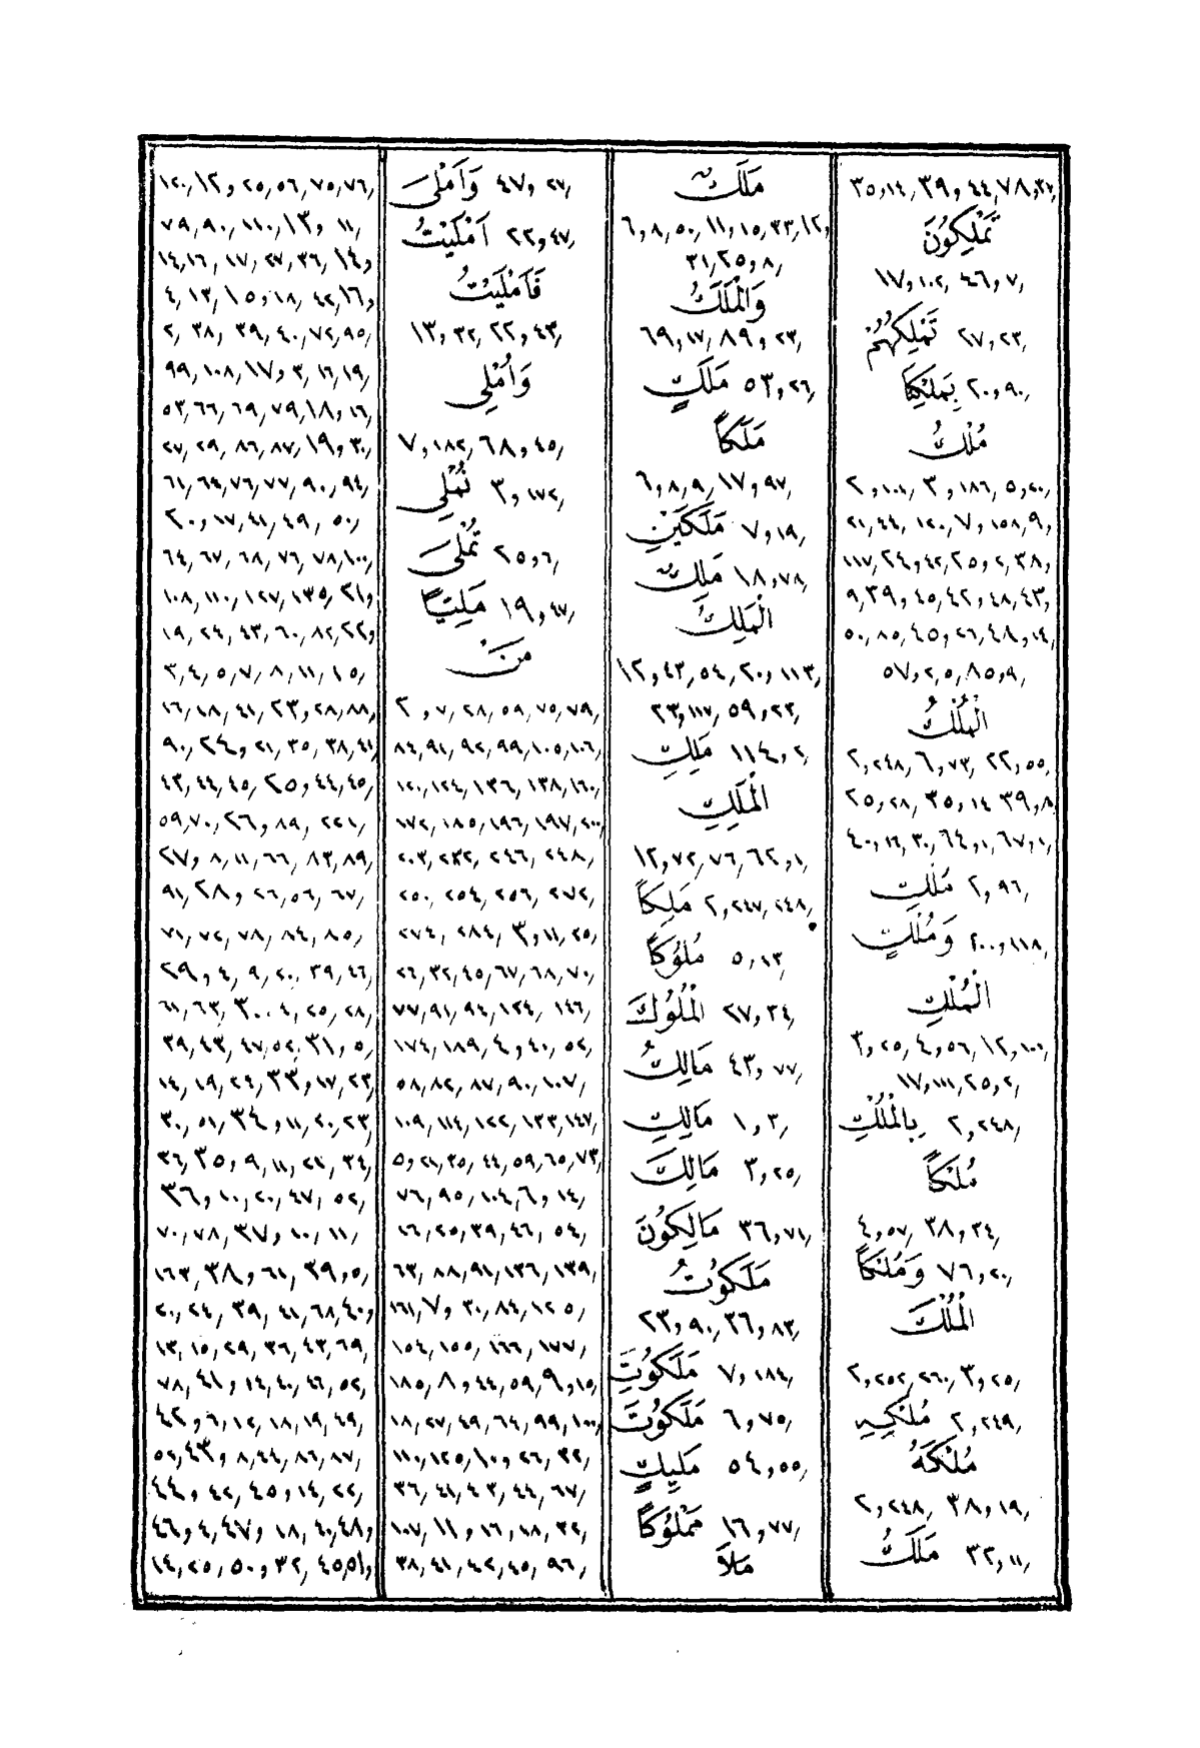 ٣٥و١٤, ٣٩و٤٤, ٧٨و٣٧,
تَمْلِكُونَ
١٧و١٠٢, ٤٦و٧,
٢٧و٢٣, تَمْلِكُهُمْ
٢٠و٩٠, بِمَلْكِنَا
مُلْكُ
٢و١٠٢, ٣و١٨٦, ٥و٤٠,
٢١و٤٤, ١٢٠, ٧و١٥٨, ٩و
١١٧, ٢٤و٤٢, ٢٥و٢, ٣٨و
٩, ٣٩و٤٥, ٤٢و٤٨, ٤٣و
٥٠, ٨٥, ٤٥و٢٦, ٤٨و١٤,
٥٧و٢, ٥, ٨٥و٩,
الْمُلْكُ
٢و٢٤٨, ٦و٧٣, ٢٢و٥٥,
٢٥و٢٨, ٣٥و١٤, ٣٩و٨
٤٠و١٦, ٣٠, ٦٤و١, ٦٧و١,
٢و٩٦, مُلْكِ
٢٠و١١٨, وَمُلْكٍ
الْمُلْكِ
٣و٢٥, ٤و٥٦, ١٢و١٠٠,
١٧و١١١, ٢٥و٢,
٢و٢٤٨, بِالْمُلْكِ
مُلْكًا
٤و٥٧, ٣٨و٣٤,
٧٦و٢٠, وَمُلْكًا
الْمُلْكَ
٢و٢٥٢, ٢٦٠, ٣و٢٥,
٢و٢٤٩, مُلْكِهِ
مُلْكَهُ
٢و٢٤٨, ٣٨و١٩,
٣٢و١١, مَلَكُ
مَلَكٌ
٦و٨, ٥٠, ١١و١٥, ٣٣, ١٢و
٣١, ٢٥و٨,
وَالْمَلَكُ
٦٩و١٧, ٨٩و٢٣,
٥٣و٢٦, مَلَكٍ
مَلَكًا
٦و٨, ٩, ١٧و٩٧,
٧و١٩, مَلَكَيْنِ
١٨و٧٨, مَلِكٌ
الْمَلِكُ
١٢و٤٣, ٥٤, ٢٠و١١٣,
٢٣و١١٧, ٥٩و٢٣,
١١٤و٢, مَلِكِ
الْمَلِكِ
١٢و٧٢, ٧٦, ٦٢و١,
٢و٢٤٧, ٢٤٨, مَلِكًا
٥و١٣, مُلُوكًا
٢٧و٣٤, الْمُلُوكَ
٤٣و٧٧, مَالِكُ
١و٣, مَالِكِ
٣و٢٥, مَالِكَ
٣٦و٧١, مَالِكُونَ
مَلَكُوتُ
٢٣و٩٠, ٣٦و٨٣,
٧و١٨٤, مَلَكُوتِ
٦و٧٥, مَلَكُوتَ
٥٤و٥٥, مَلِيكٍ
١٦و٧٧, مَمْلُوكًا
مَلَأ
٤٧و٢٧, وَأَمْلَى
٢٢و٤٧, أَمْلَيْتُ
فَأَمْلَيْتُ
١٣و٣٢, ٢٢و٤٣,
وَأُمْلِي
٧و١٨٢, ٦٨و٤٥,
٣و١٧٢, نُمْلِي
٢٥و٦, تُمْلَى
١٩و٤٧, مَلِيًّا
مَنْ
٢و٧, ٢٨, ٥٩, ٧٥, ٧٩,
٨٤, ٩١, ٩٢, ٩٩, ١٠٥, ١٠٦,
١٢٠, ١٢٤, ١٣٦, ١٣٨, ١٦٠,
١٧٢, ١٨٥, ١٩٦, ١٩٧, ٢٠٠,
٢٠٣, ٢٣٢, ٢٤٦, ٢٤٨,
٢٥٠, ٢٥٤, ٢٥٦, ٢٧٢,
٢٧٤, ٢٨٤, ٣و١١, ٢٥,
٢٦, ٣٢, ٤٥, ٦٧, ٦٨, ٧٠,
٧٧, ٩١, ٩٤, ١٢٤, ١٤٦,
١٧٤, ١٨٩, ٤و٤٠, ٥٢,
٥٨, ٨٢, ٨٧, ٩٠, ١٠٧,
١٠٩, ١١٤, ١٢٢, ١٣٣, ١٤٧,
٥و٢١, ٣٥, ٤٤, ٥٩, ٦٥, ٧٣,
٧٦, ٩٥, ١٠٤, ٦و١٤,
١٦, ٢٥, ٣٩, ٤٦, ٥٤,
٦٣, ٨٨, ٩١, ١٣٦, ١٣٩,
١٦١, ٧و٣٠, ٨٤, ١٢٥
١٥٤, ١٥٥, ١٦٦, ١٧٧,
١٨٥, ٨و٤٤, ٥٩, ٩و١٥,
١٨, ٢٧, ٤٩, ٦٤, ٩٩, ١٠٠,
١١٠, ١٢٥, ١٠و٢٦, ٣٢,
٣٦, ٤١, ٤٣, ٤٤, ٦٧,
١٠٧, ١١و١٦, ١٨, ٣٢,
٣٨, ٤١, ٤٢, ٤٥, ٩٦,
١٢٠, ١٢و٢٥, ٥٦, ٧٥, ٧٦,
٧٩, ٩٠, ١١٠, ١٣و١١,
١٤, ١٦, ١٧, ٢٧, ٣٦, ١٤و
٤, ١٣, ١٥و١٨, ٤٢, ١٦و
٢, ٣٨, ٣٩, ٤٠, ٧٢, ٩٥,
٩٩, ١٠٨, ١٧و٣, ١٦, ١٩,
٥٣, ٦٦, ٦٩, ٧٩, ١٨و١٦,
٢٧, ٢٩, ٨٦, ٨٧, ١٩و٣٠,
٦١, ٦٤, ٧٦, ٧٧, ٩٠, ٩٤,
٢٠و١٧, ٤١, ٤٩, ٥٠,
٦٤, ٦٧, ٦٨, ٧٦, ٧٨, ١٠٠,
١٠٨, ١١٠, ١٢٧, ١٣٥, ٢١و
١٩, ٢٤, ٤٣, ٦٠, ٨٢, ٢٢و
٣, ٤, ٥, ٧, ٨, ١١, ١٥,
١٦, ١٨, ٤١, ٢٣و٢٨, ٨٨,
٩٠, ٢٤و٢١, ٣٥, ٣٨, ٤١
٤٣, ٤٤, ٤٥, ٢٥و٤٤, ٤٥,
٥٩, ٧٠, ٢٦و٨٩, ٢٢١,
٢٧و٨, ١١, ٦٦, ٨٣, ٨٩,
٩١, ٢٨و٢٦, ٥٦, ٦٧,
٧١, ٧٢, ٧٨, ٨٤, ٨٥,
٢٩و٤, ٩, ٢٠, ٣٩, ٤٦,
٦١, ٦٣, ٣٠و٤, ٢٥, ٢٨,
٣٩, ٤٣, ٤٧, ٥٢, ٣١و٥,
١٤, ١٩, ٢٤, ٣٣و١٧, ٢٣,
٣٠, ٥١, ٣٤و١١, ٢٠, ٢٣,
٣٦, ٣٥و٩, ١١, ٢٢, ٣٤,
٣٦و١٠, ٢٠, ٤٧, ٥٢,
٧٠, ٧٨, ٣٧و١٠, ١١,
١٦٣, ٣٨و٦١, ٣٩و٥,
٢٠, ٢٤, ٣٩, ٤١, ٦٨, ٤٠و
١٣, ١٥, ٢٩, ٣٦, ٤٣, ٦٩,
٧٨, ٤١و١٤, ٤٠, ٤٦, ٥٢,
٤٢و٦, ١٢, ١٨, ١٩, ٤٩,
٥٢, ٤٣و٨, ٤٤, ٨٦, ٨٧,
٤٤و٤٢, ٤٥و١٤, ٢٢,
٤٦و٤, ٤٧و١٨, ٤٠, ٤٨و
١٤, ٢٥, ٥٠و٣٢, ٤٥, ٥١و